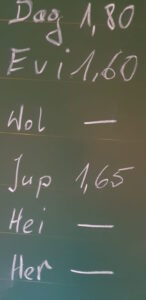 Dag 1,80
Evi 1,60
Wol —
Jup 1,65
Hei —
Her —